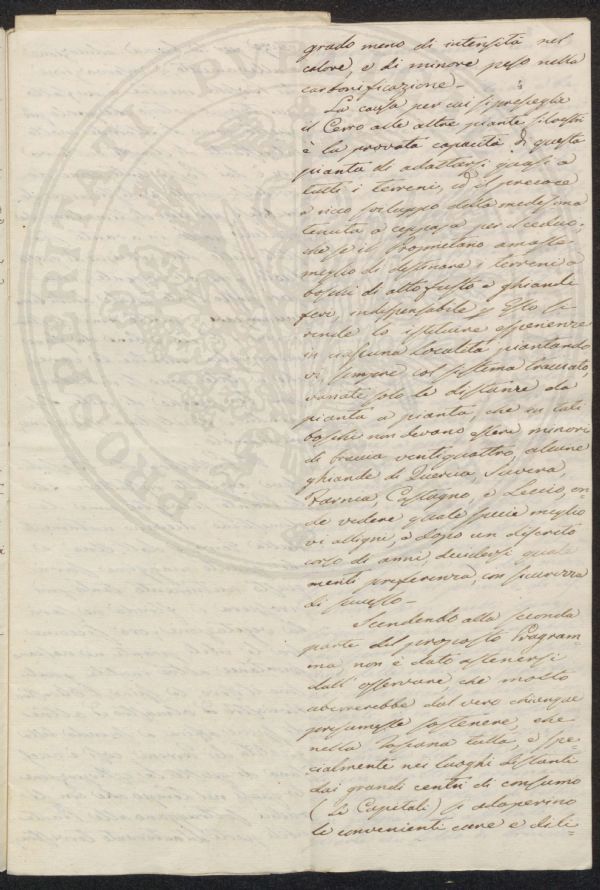 grado meno di intensità nel
calore, e di minore peso nella
carbonificazione.-
La causa per cui si presceglie
il Cerro alle altre piante silvestri
è la provata capacità di questa
pianta di adattarsi quasi a
tutti i terreni, ed il precoce
e ricco sviluppo della medesima
tenuta a ceppaja per il ceduo,
che se il proprietario amasse
meglio di destinare i terreni a
boschi di alto fusto e ghiande
feri indispensabile
rende lo istituire esperienze
in ciascuna Località piantando
vi sempre col sistema tracciato
variate solo le distanze da
pianta a pianta, che in tali
boschi non devono essere minori
di braccia ventiquattro, alcune
ghiande di Quercia, Suvera,
Farnia Castagno, e Leccio, on
de vedere quale specie meglio
vi alligni, e dopo un discreto
corso di anni, decidersi quale
menti preferenza, con sicurezza
di successo-
Scendendo alla seconda
parte del proposto Program-
ma, non è dato astenersi
dall'osservare, che molto
aberrerebbe dal vero chiunque
presumesse sostenere, che
nella Toscana tutta, e spe-
cialmente nei luoghi distanti
dai grandi centri di consumo
(Le Capitali) si adoperino
le convenienti cure e dili=
PROSPERITATI PVBLICAE